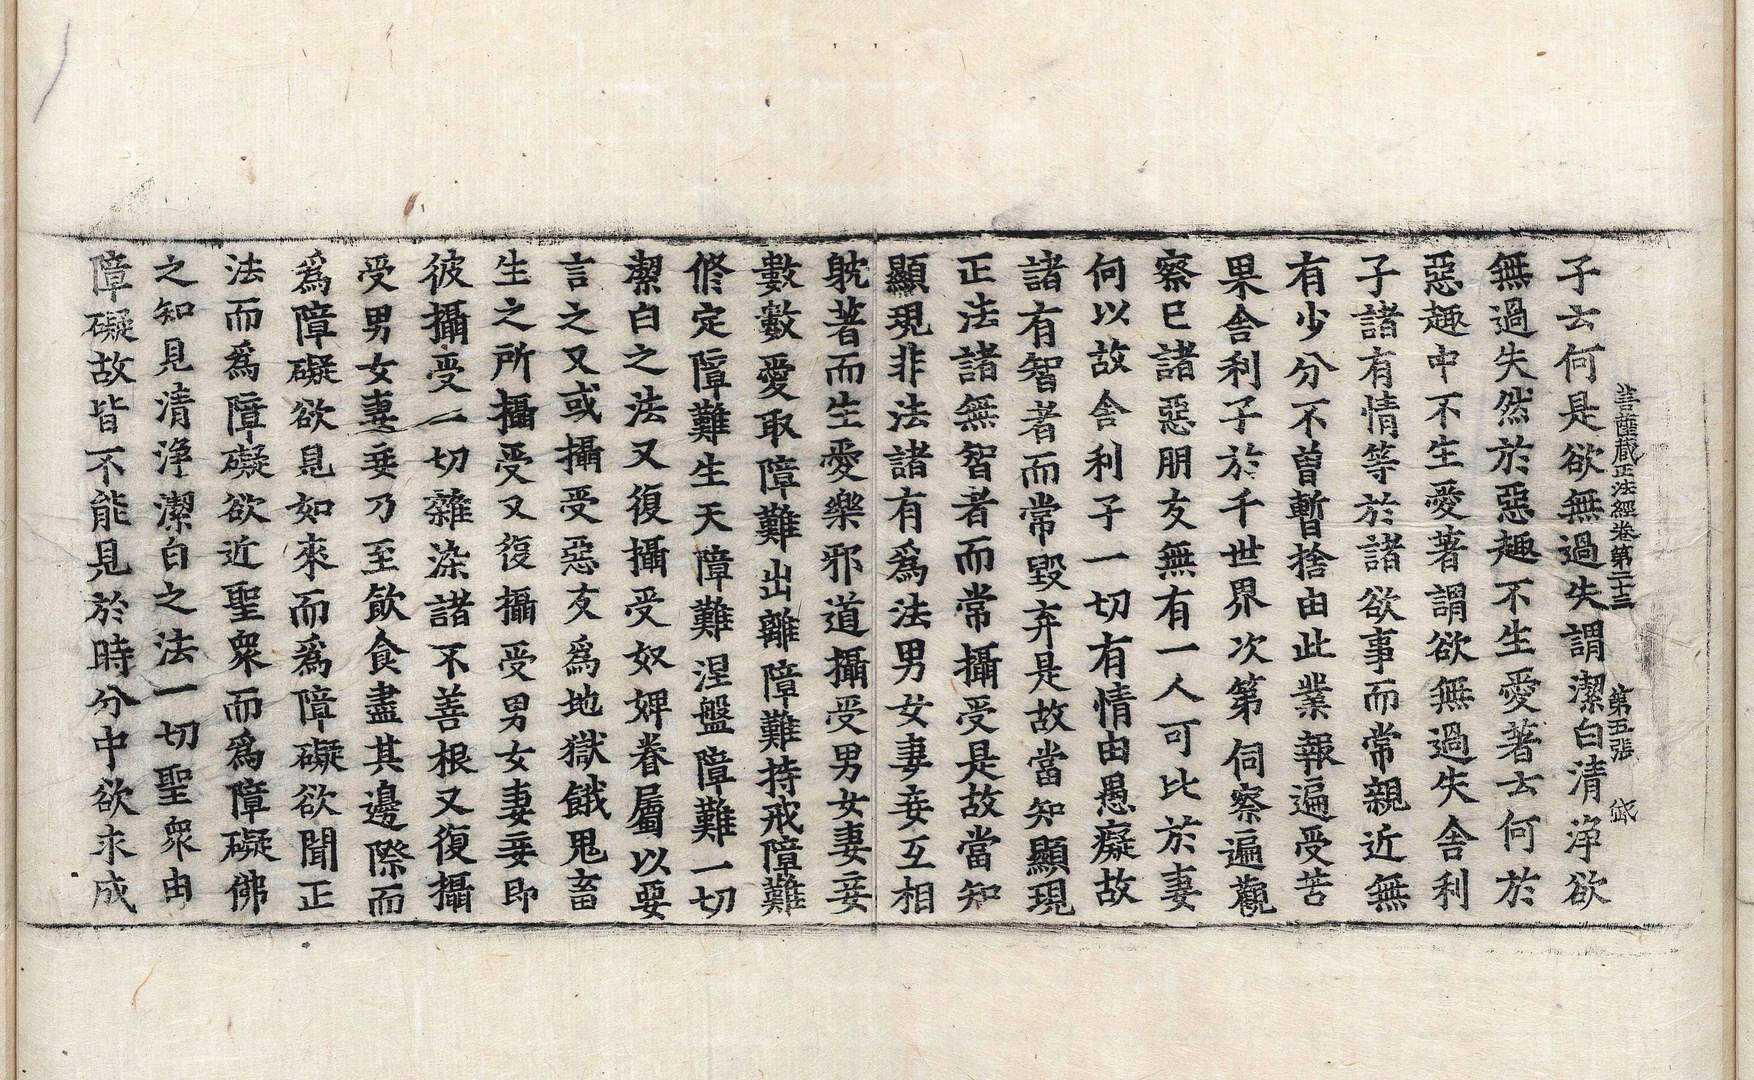 菩薩藏正法經卷第二十三　第五張
子云何是欲無過失謂潔白清淨欲
無過失然於惡趣不生愛著云何於
惡趣中不生愛著謂欲無過失舍利
子諸有情等於諸欲事而常親近無
有少分不曾暫捨由此業報遍受苦
果舍利子於千世界次第伺察遍觀
察已諸惡朋友無有一人可比於妻
何以故舍利子一切有情由愚癡故
諸有智者而常毀弃是故當知顯現
正法諸無智者而常攝受是故當知
顯現非法諸有爲法男女妻妾互相
躭著而生愛樂邪道攝受男女妻妾
數數愛取障難出離障難持戒障難
修定障難生天障難涅盤障難一切
潔白之法又復攝受奴婢眷屬以要
言之又或攝受惡友爲地獄餓鬼畜
生之所攝受又復攝受男女妻妾即
彼攝受一切雜染諸不善根又復攝
受男女妻妾乃至飲食盡其邊際而
爲障礙欲見如來而爲障礙欲聞正
法而爲障礙欲近聖衆而爲障礙佛
之知見清淨潔白之法一切聖衆由
障礙故皆不能見於時分中欲求成